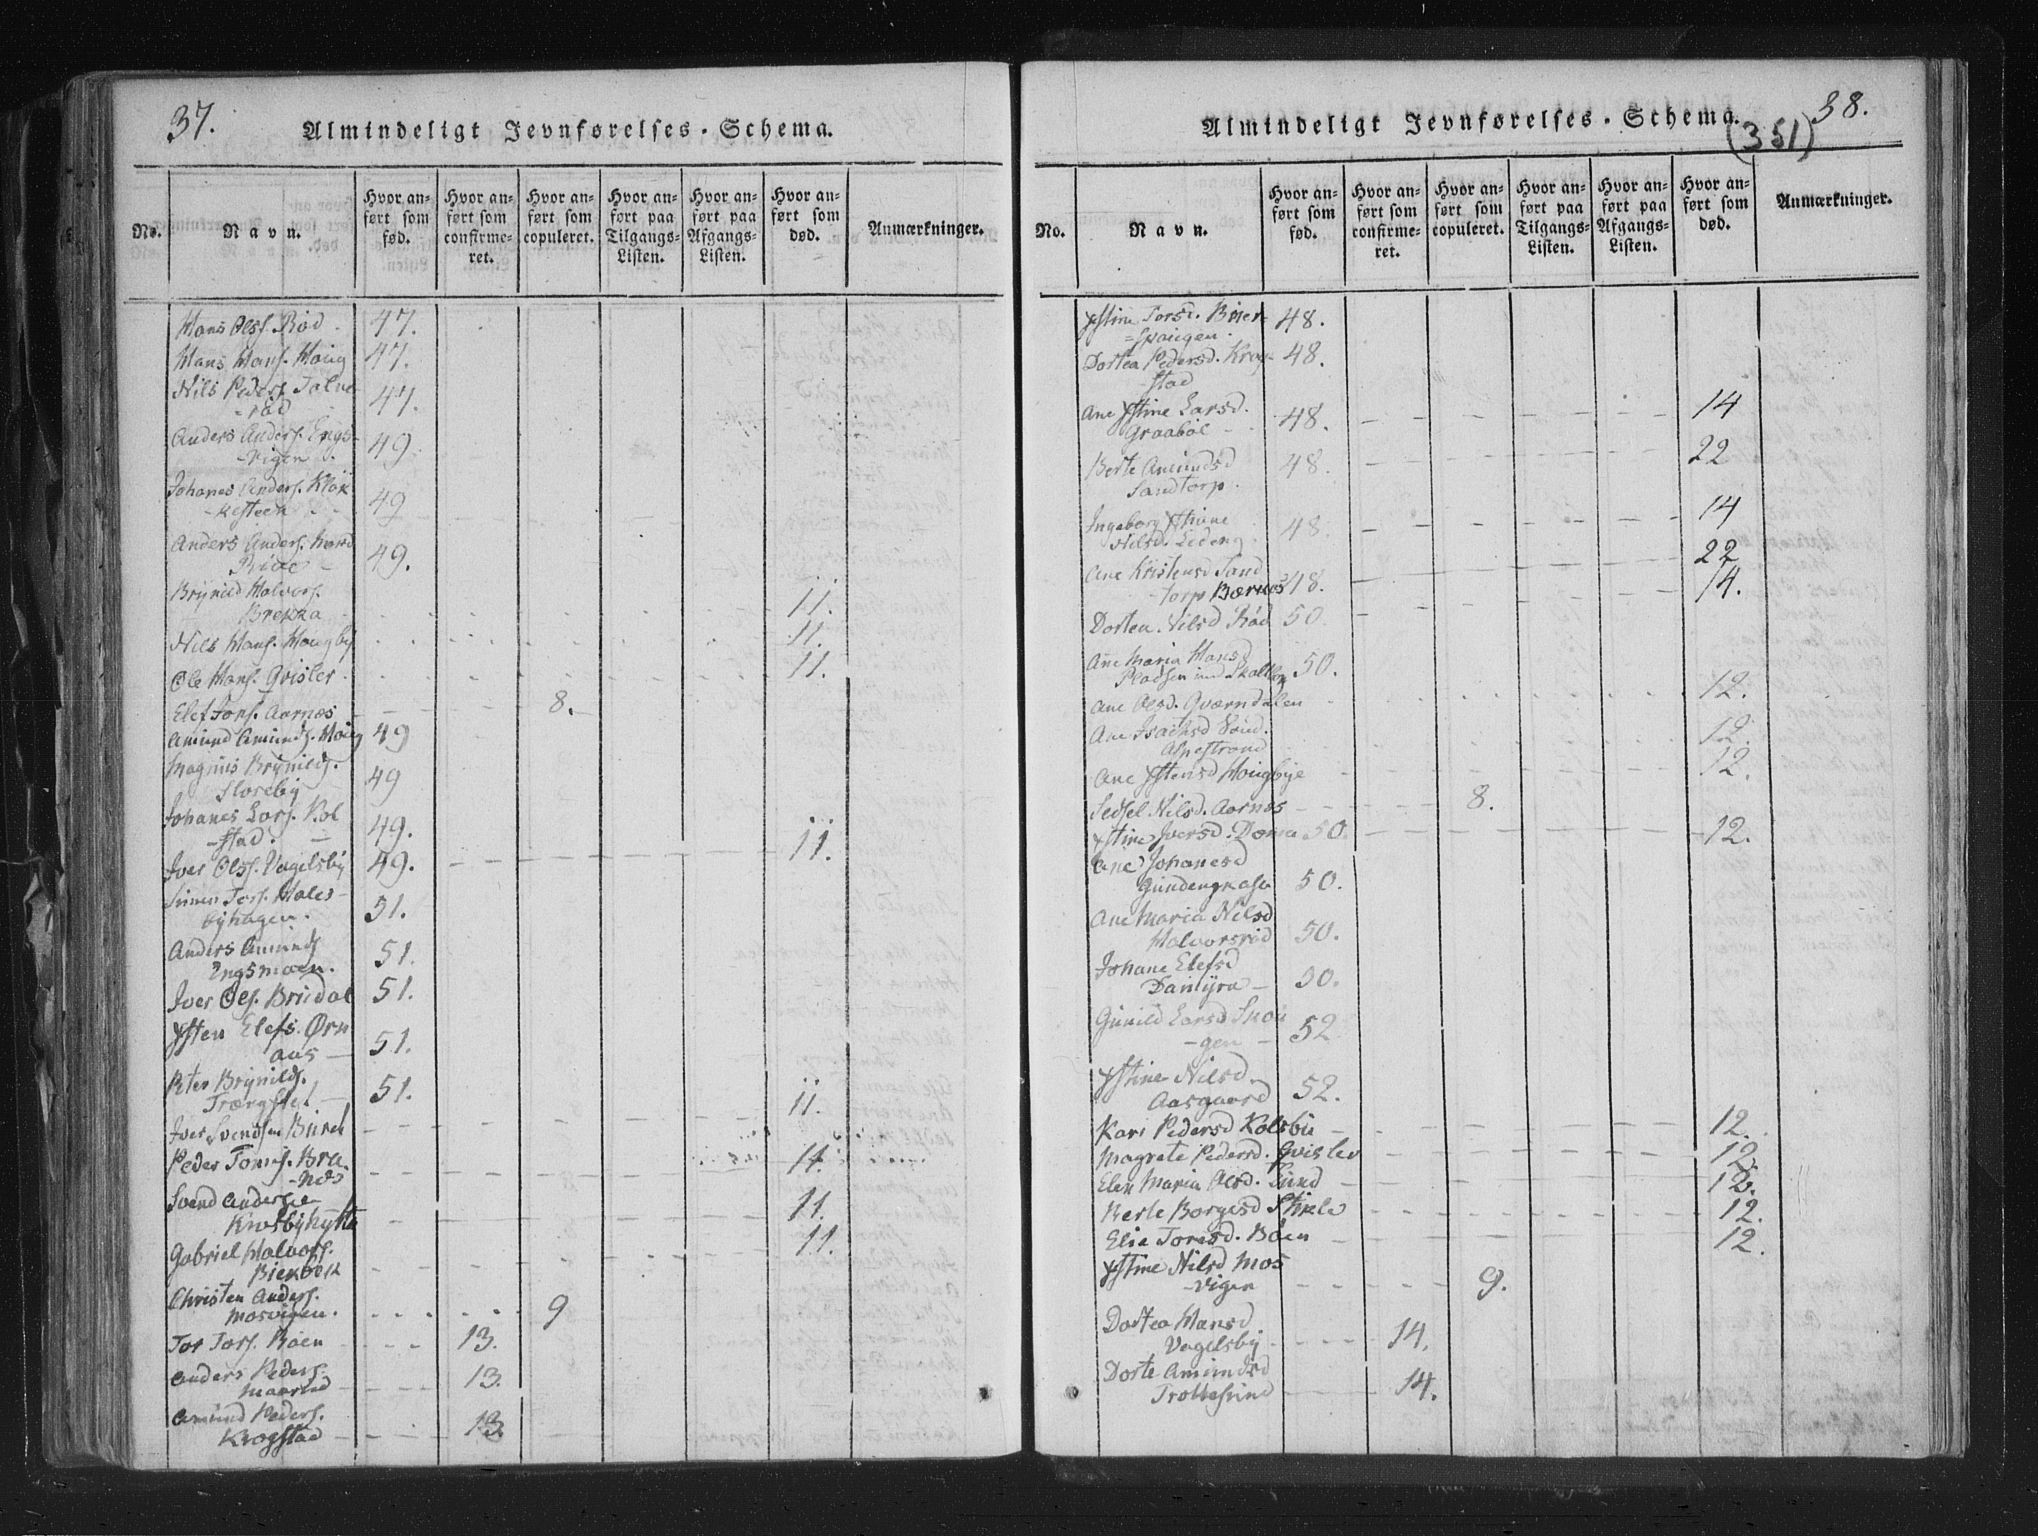 37.
Almindeligt Jevnførelses-Schema.
No.
Navn.
Hvor an-
ført som
fød.
Hvor an-
ført som
confirme-
ret.
Hvor an-
ført som
copuleret.
Hvor an-
ført paa
Tilgangs-
Listen.
Hvor an-
ført paa
Afgangs-
Listen.
Hvor an-
ført som
død.
Anmærkninger.
Hans Olss. Rød - 47.
Hans Hans. Houg 47.
Nils Peders.
-rød 47.
Anders Anders. Engs-
-vigen. 49
Johanes Anders. Klok
-kesteen - - 49
Anders Anders.
49.
Brynild Halvors.
Brekka 11.
Nils Hans. Hougby 11.
Ole Hans. Qvisler 11.
Elef Jons. Aarnæs 8.
Amund Amunds. Houg 49
Magnus Brynilds.
Floreby 49
Johanes Lars. Kol
-stad. 49.
Iver Olss. Vagelsby 49. 11.
Tors. Hales-
byhagen. 51.
Anders Amunds
Engsmoen. 51.
Iver Ols. Brudal 51.
Ysten Elefs. Ørn
aas - 51.
Peter Brynilds.
51.
Iver Svendsen 11.
Peder Toms. Bra-
-næs 11.
Svend Anderse
11.
Gabriel Halvors.
11.
Christen Anders.
Mosvigen. 9
Tor Tors. Bøen 13.
Anders Peders.
13.
Amund Peders.
Krogstad 13.
38.
(351)
Almindeligt Jevnførelses-Schema.
No.
Navn.
Hvor an-
ført som
fød.
Hvor an-
ført som
confirme-
ret.
Hvor an-
ført som
copuleret.
Hvor an-
ført paa
Tilgangs-
Listen.
Hvor an-
ført paa
Afgangs-
Listen.
Hvor an-
ført som
død.
Anmærkninger.
Ystine Torsd.
48.
Dortea Pedersd. Krog-
stad 48.
Ane Ystine Larsd.
Graabøl 48. 14
Berte Amundsd
Sandtorp. 48. 22
Ingeborg Ystine
Nilsd. 48. 14
Ane Kristensd Sand
torp Bærnæs 48. 22
Dortea Nilsd Rød 50. 14.
Ane Maria Hansd
Pladsen 50.
Ane Olsd. Qværndalen 12.
Ane Isachsd
Alnestrand 12.
Ane Ystensd Hougbye 12.
Sedsel Nilsd. Aarnæs 8.
Ystine Iversd. 50. 12.
Ane Johanesd
50.
Ane Maria Nilsd
Halvorsrød 50.
Johane Elefsd
50.
Gunild Larsd
-gen - 52
Ystine Nilsd
Aasgaard 52.
Kari Pedersd Kolsbu 12.
Magrete Pedersd. Qvisler 12
Elen Maria Olsd. Lund 12.
Berte Borgesd 12.
Elie Toresd. Bøen 12.
Ystine Nilsd Mos
-vigen 9.
Dortea Hansd
Vagelsby 14.
Dorte Amundsd
14.